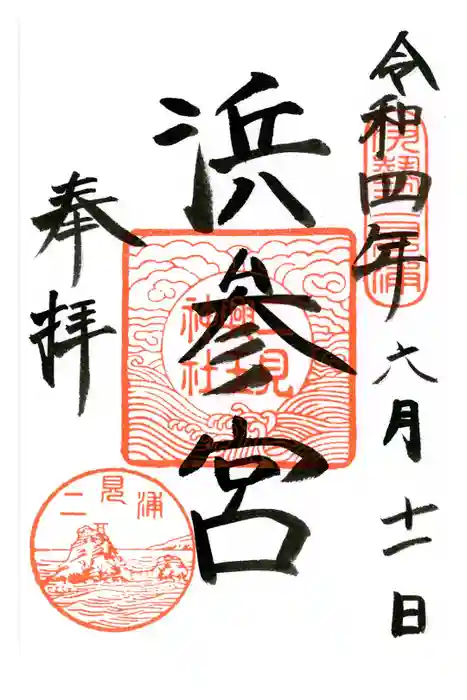 令和四年六月十一日
伊勢二見浦
浜参宮
二見興玉神社
奉拝
二見浦